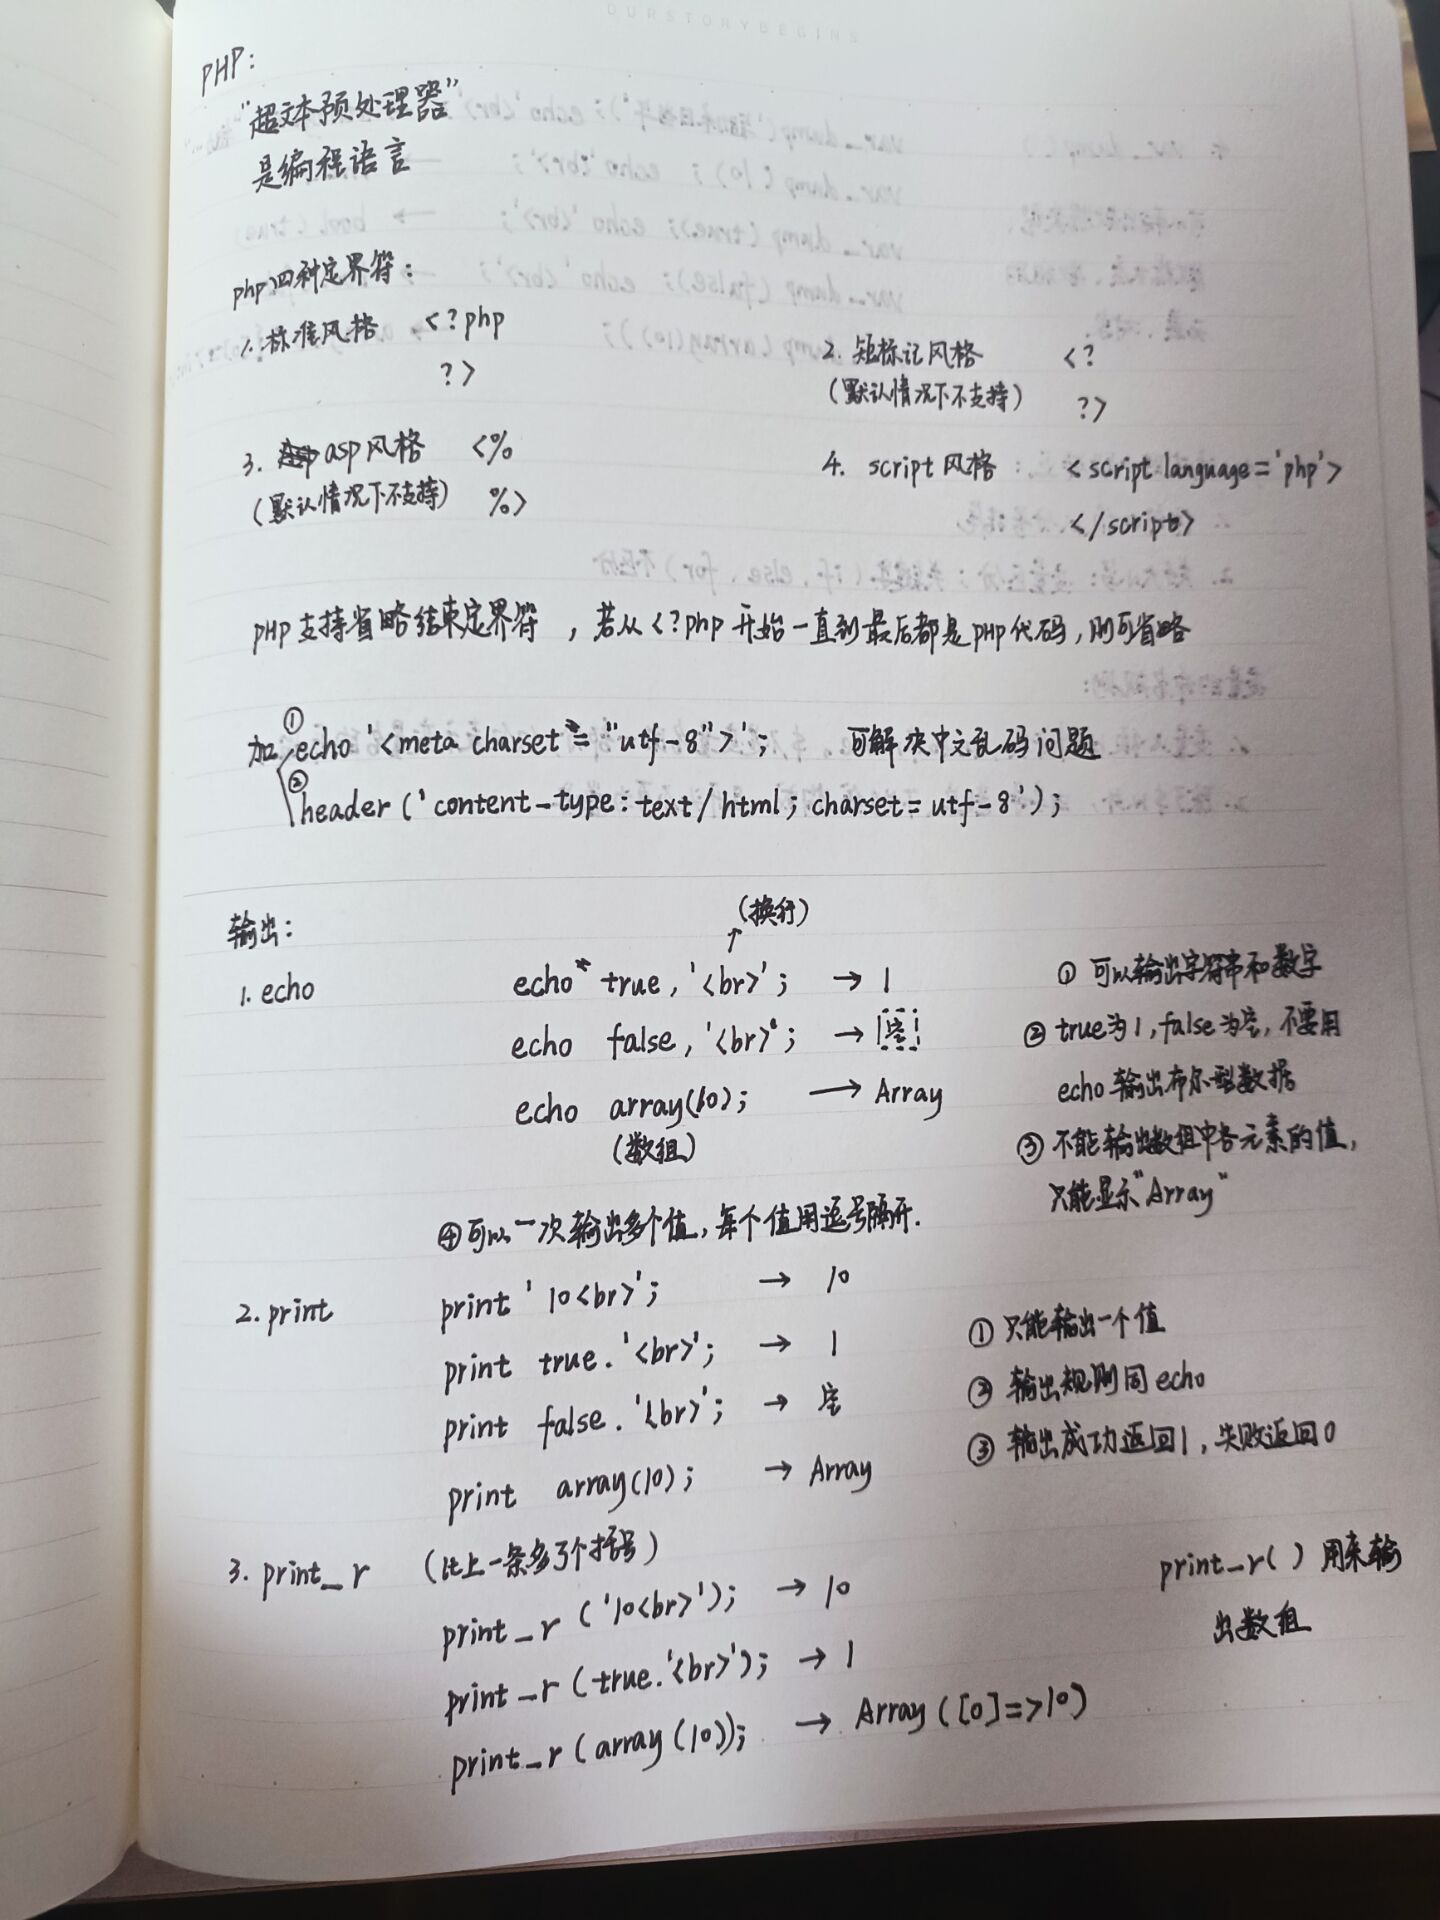 OURSTORYBEGINS
PHP:
"超文本预处理器"
是编程语言
php四种定界符:
1. 标准风格 <?php
?>
2. 短标记风格 <?
(默认情况下不支持) ?>
3. asp风格 <%
(默认情况下不支持) %>
4. script风格 <script language='php'>
</script>
PHP支持省略结束定界符,若从<?php开始一直到最后都是PHP代码,则可省略
加 ① echo '<meta charset="utf-8">'; 可解决中文乱码问题
② header('content-type:text/html; charset=utf-8');
输出:
(换行)
1. echo echo true,'<br>'; → 1
echo false,'<br>'; → 空
echo array(10); → Array
(数组)
① 可以输出字符串和数字
② true为1,false为空,不要用
echo输出布尔型数据
③ 不能输出数组中各元素的值,
只能显示"Array"
④可以一次输出多个值,每个值用逗号隔开.
2. print print '10<br>'; → 10
print true.'<br>'; → 1
print false.'<br>'; → 空
print array(10); → Array
① 只能输出一个值
② 输出规则同echo
③ 输出成功返回1,失败返回0
3. print_r (比上一条多了个括号)
print_r('10<br>'); → 10
print_r(true.'<br>'); → 1
print_r(array(10)); → Array([0]=>10)
print_r()用来输
出数组